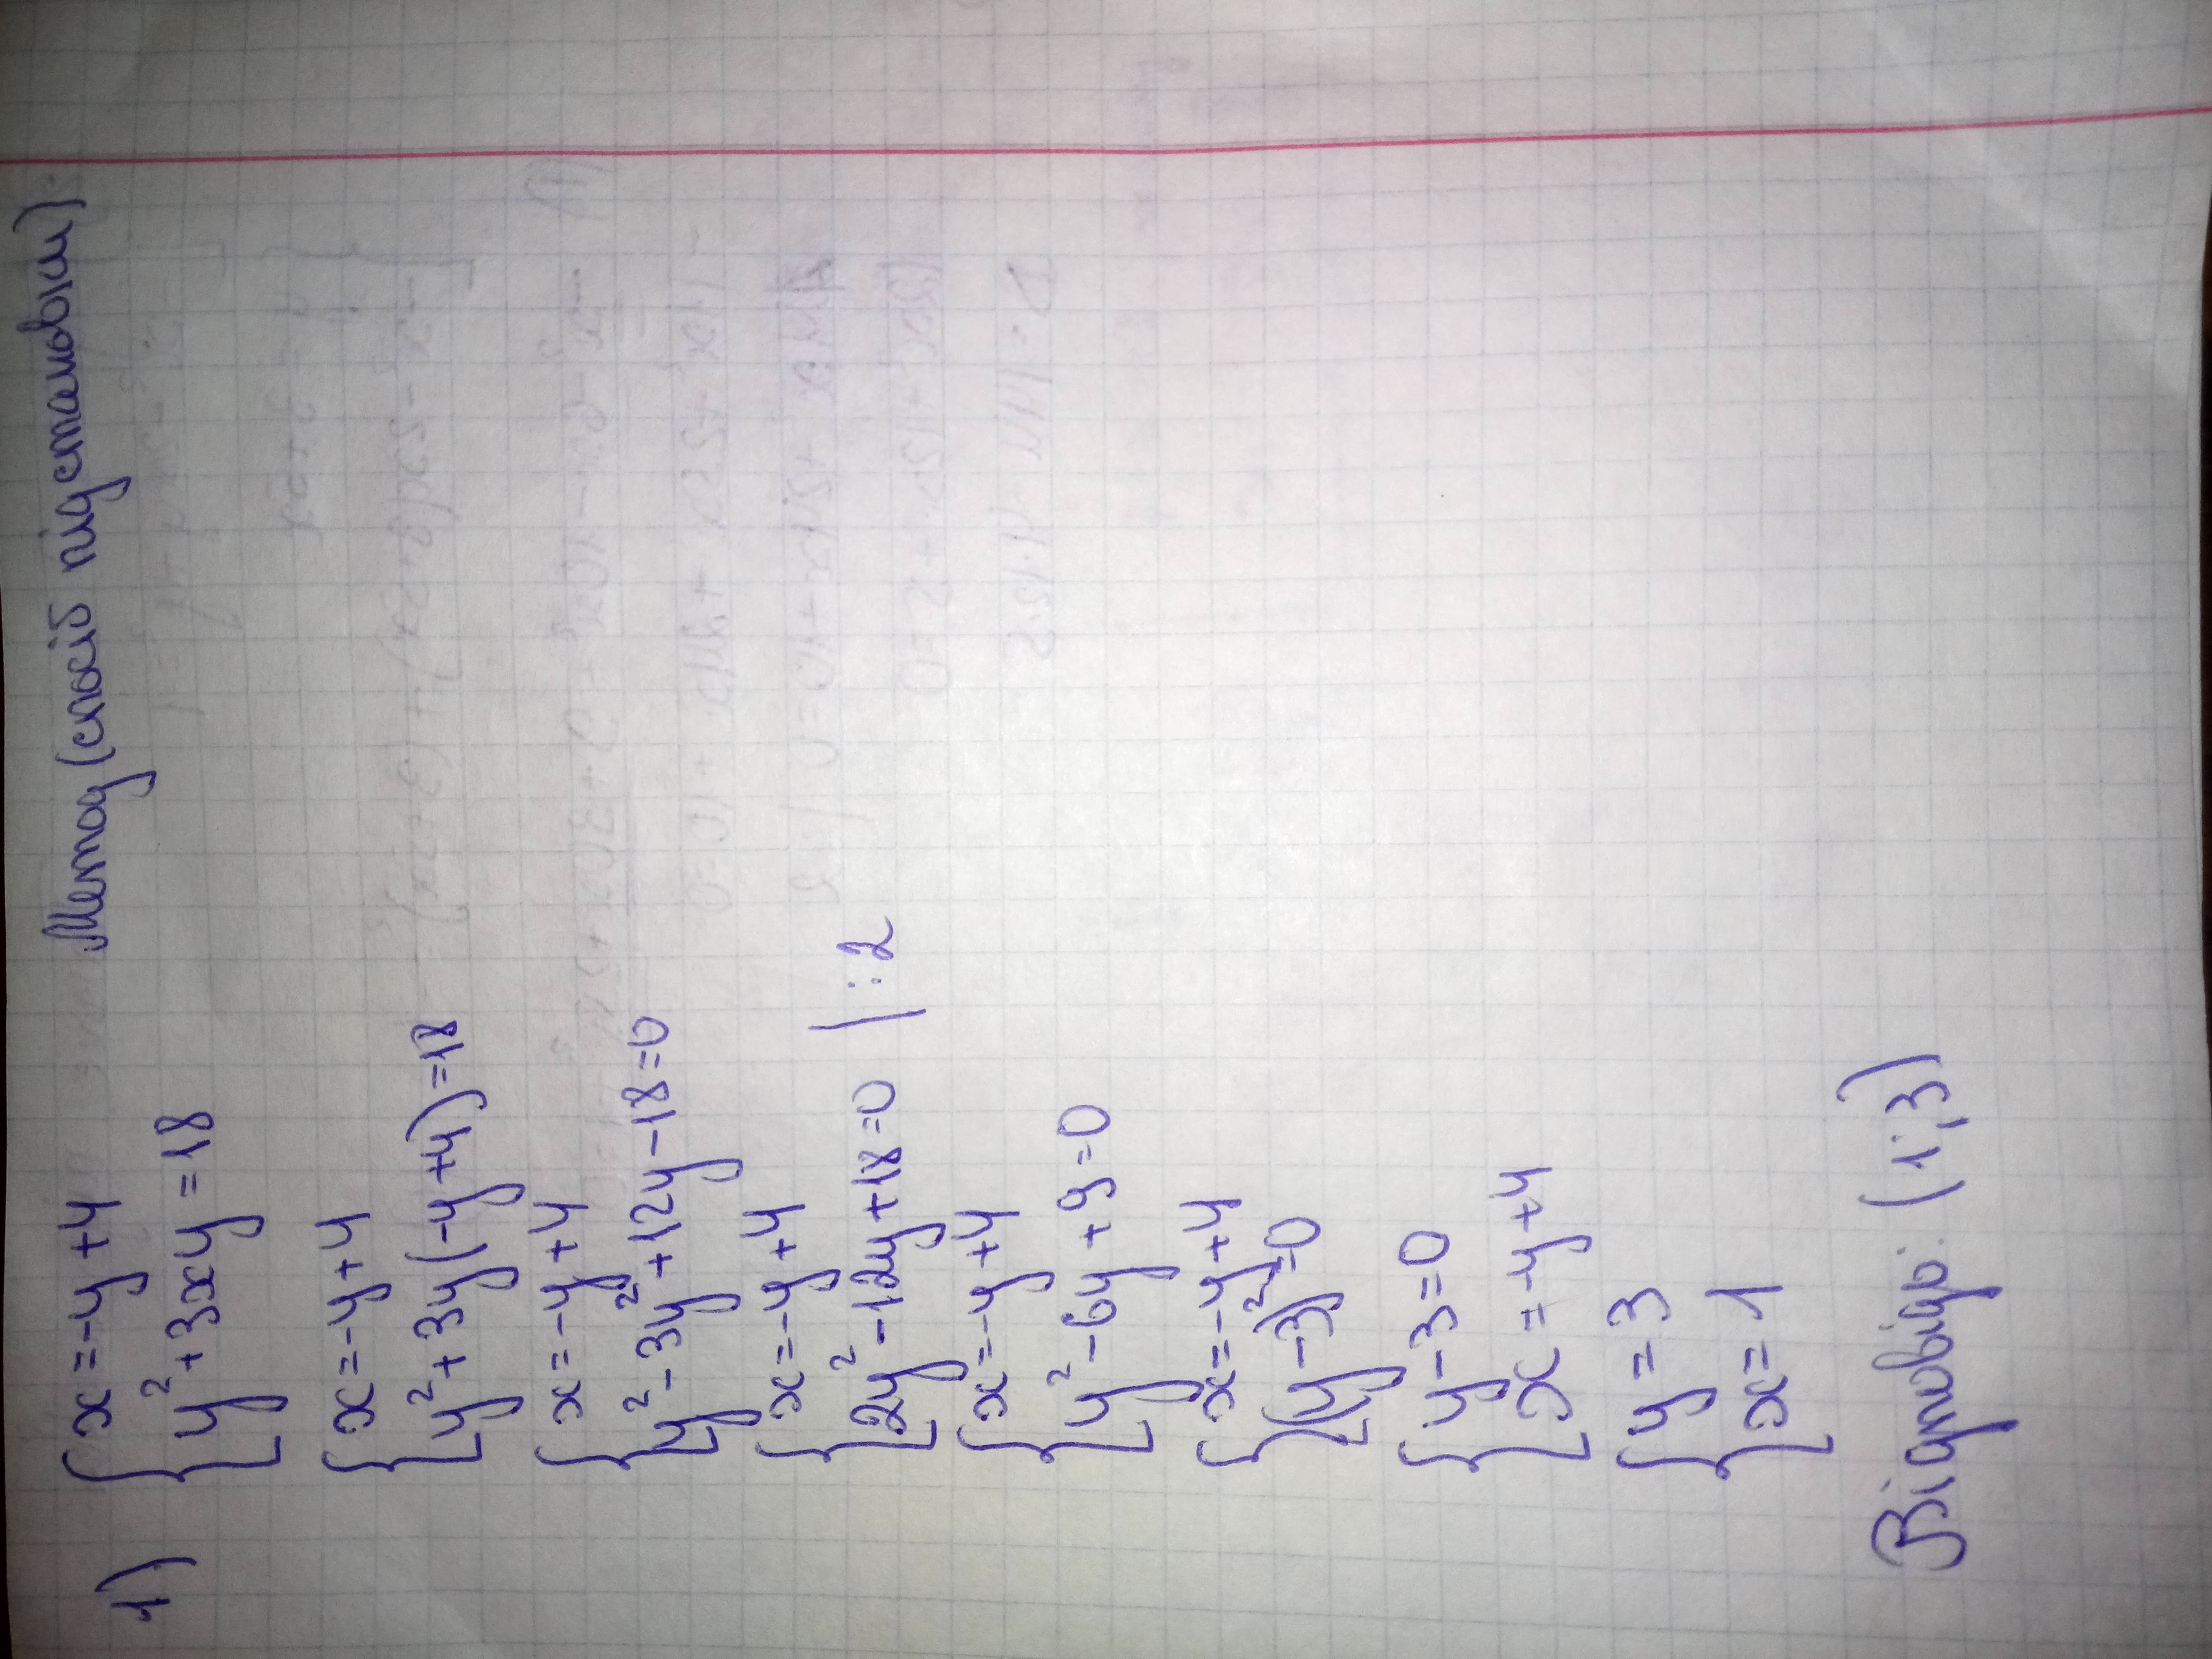 1) { x=-y+4 Метод (спосіб підстановки)
{ y²+3xy=18
{ x=-y+4
{ y²+3y(-y+4)=18
{ x=-y+4
{ y²-3y²+12y-18=0
{ x=-y+4
{ 2y²-12y+18=0 |:2
{ x=-y+4
{ y²-6y+9=0
{ x=-y+4
{ (y-3)²=0
{ y-3=0
{ x=-y+4
{ y=3
{ x=1
Відповідь: (1;3)